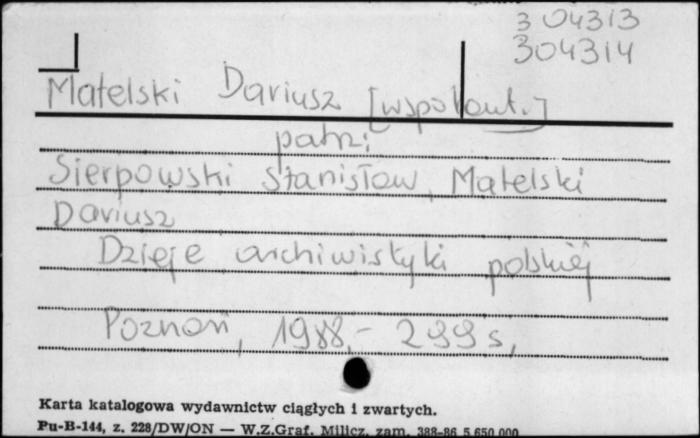 304313
304314
Matelski Dariusz [współaut.]
patrz:
Sierpowski Stanisław, Matelski
Dariusz
Dzieje archiwistyki polskiej
Poznań, 1988.- 299 s.
Karta katalogowa wydawnictw ciągłych i zwartych.
Pu-B-144, z. 228/DW/ON — W.Z.Graf. Milicz, zam. 388-86 5.650.000